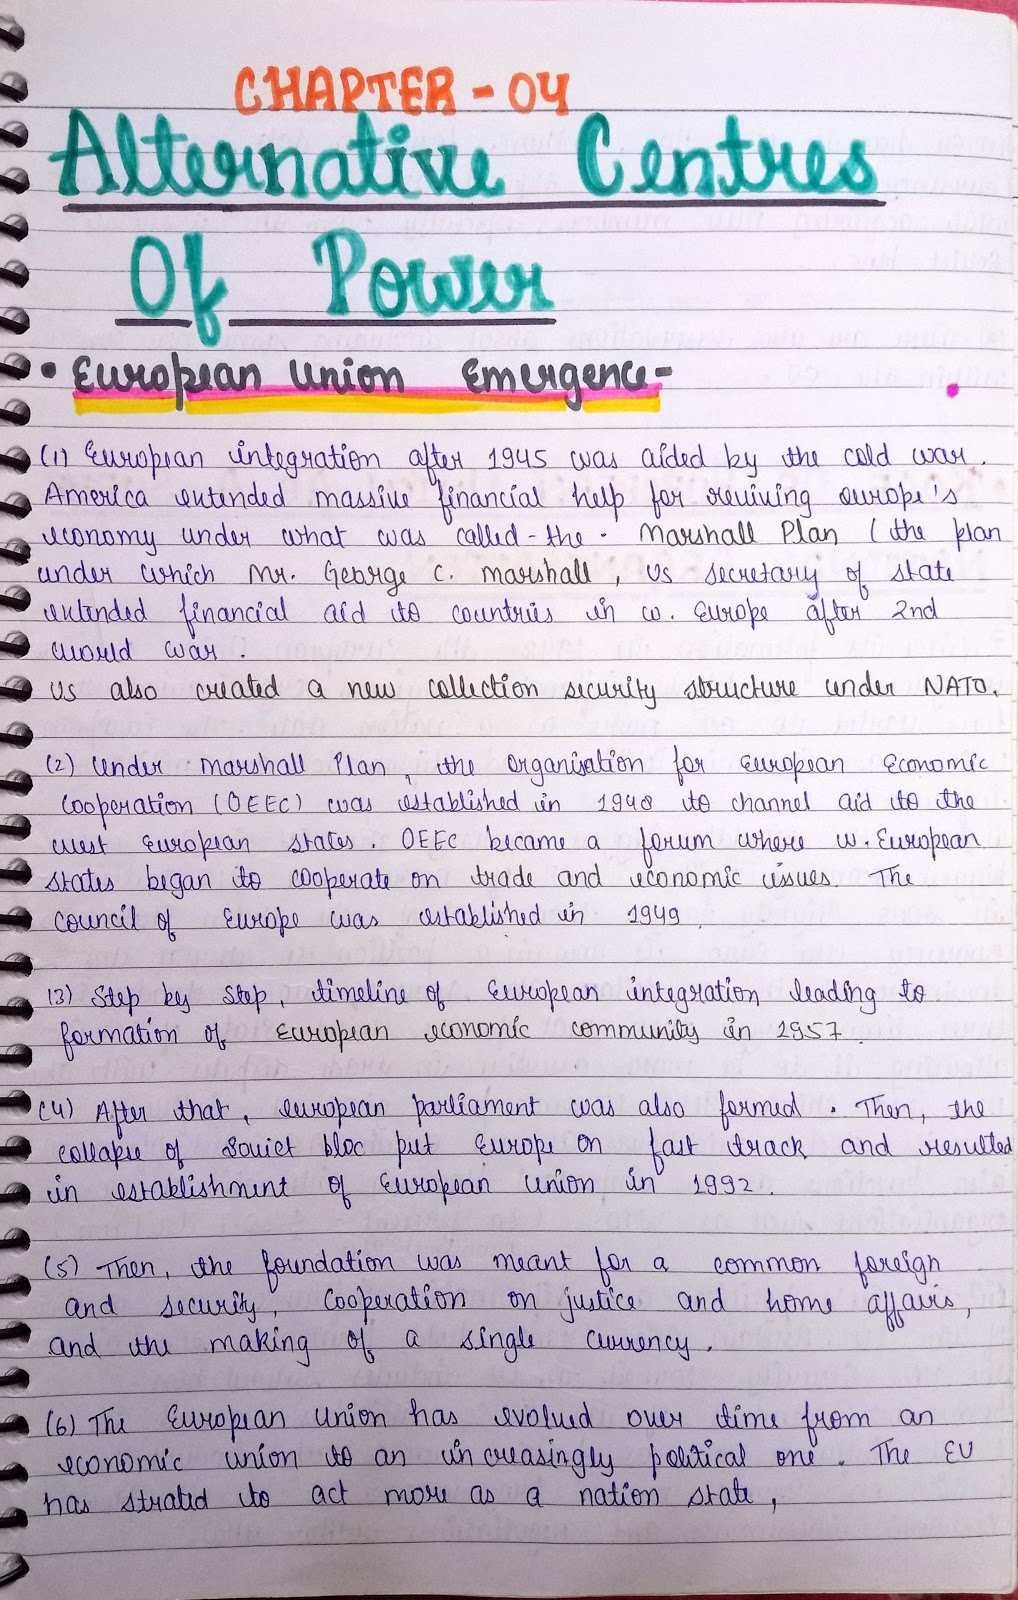 CHAPTER - 04
Alternative Centres
Of Power
• European Union Emergence-
(1) European integration after 1945 was aided by the cold war.
America extended massive financial help for reviving europe's
economy under what was called - the . Marshall Plan ( the plan
under which Mr. George C. marshall, US secretary of state
extended financial aid to countries in w. Europe after 2nd
world war.
US also created a new collection security structure under NATO.
(2) Under Marshall Plan, the Organisation for European Economic
Cooperation (OEEC) was established in 1948 to channel aid to the
west European states. OEEC became a forum where w. European
states began to cooperate on trade and economic issues. The
council of Europe was established in 1949.
(3) Step by Step, timeline of European integration leading to
formation of European economic community in 1957.
(4) After that, european parliament was also formed. Then, the
collapse of Soviet bloc put Europe on fast track and resulted
in establishment of European Union in 1992.
(5) Then, the foundation was meant for a common foreign
and security, Cooperation on justice and home affairs,
and the making of a single currency.
(6) The European Union has evolved over time from an
economic union to an increasingly political one. The EU
has strated to act more as a nation state,